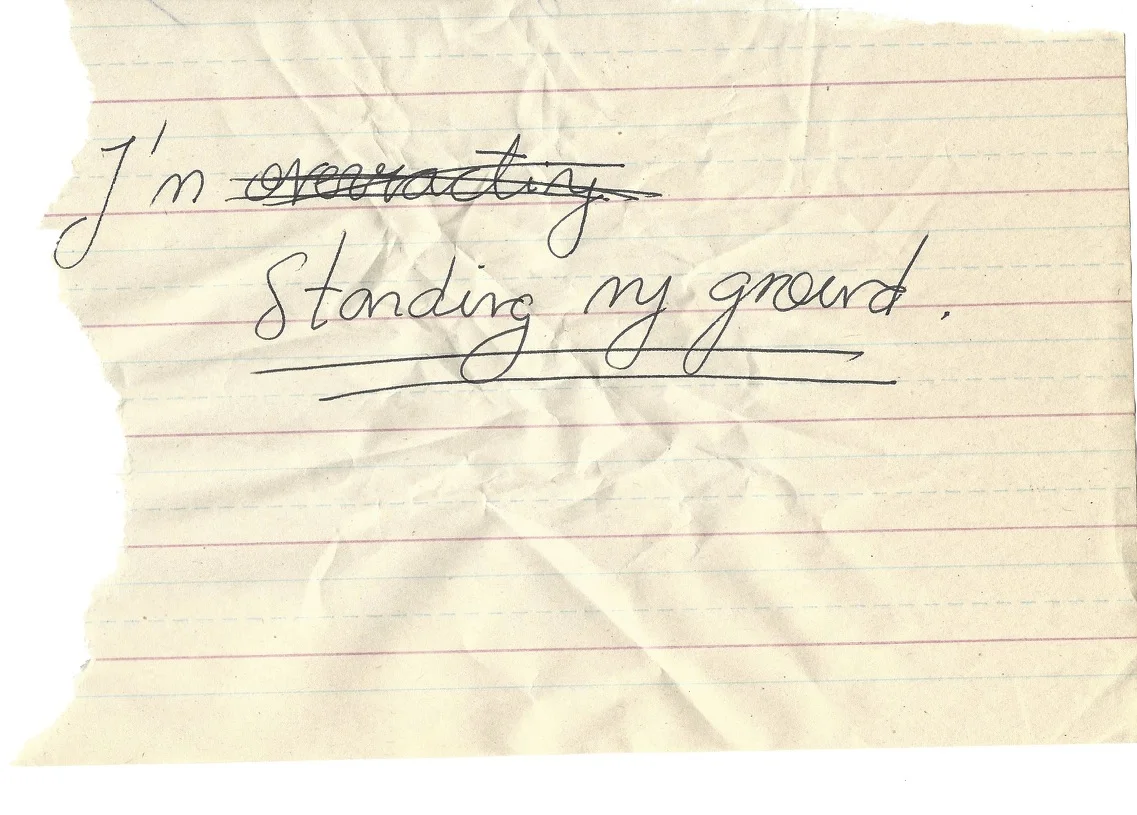 I'm overracting
Standing my ground.